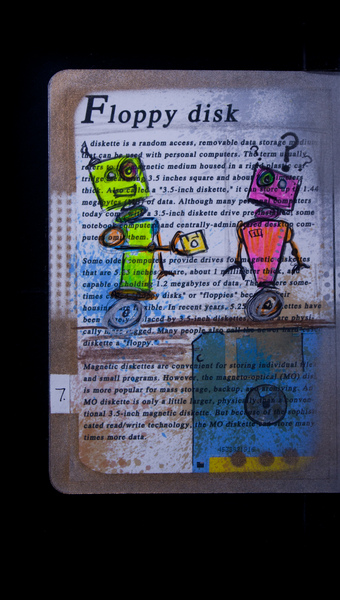 Floppy disk
A diskette is a random access, removable data storage medium
that can be used with personal computers. The term usually
refers to magnetic medium housed in a rigid plastic
3.5 inches square and about
thick. Also called a "3.5-inch diskette," it can store 1.44
megabytes of data. Although many personal computers
today come with 3.5-inch diskette drive some
notebook and centrally-administered desktop
them.
Some older computers provide drives for magnetic diskettes
that are 5.25 inches square, about 1 millimeter thick, and
capable of holding 1.2 megabytes of data. These are some-
times disks," or "floppies" because their
housing is flexible. In recent years, 5.25 diskettes have
been replaced by 3.5-inch diskettes are physi-
cally more rugged. Many people also call the
diskette a "floppy."
Magnetic diskettes are convenient for storing individual files
and small programs. However, the magneto-optical (MO) disk
is more popular for mass storage, backup, and archiving. An
MO diskette is only a little larger, physically, than a conven-
tional 3.5-inch magnetic diskette. But because of the sophisti-
cated read/write technology, the MO diskette can store many
times more data.
7.